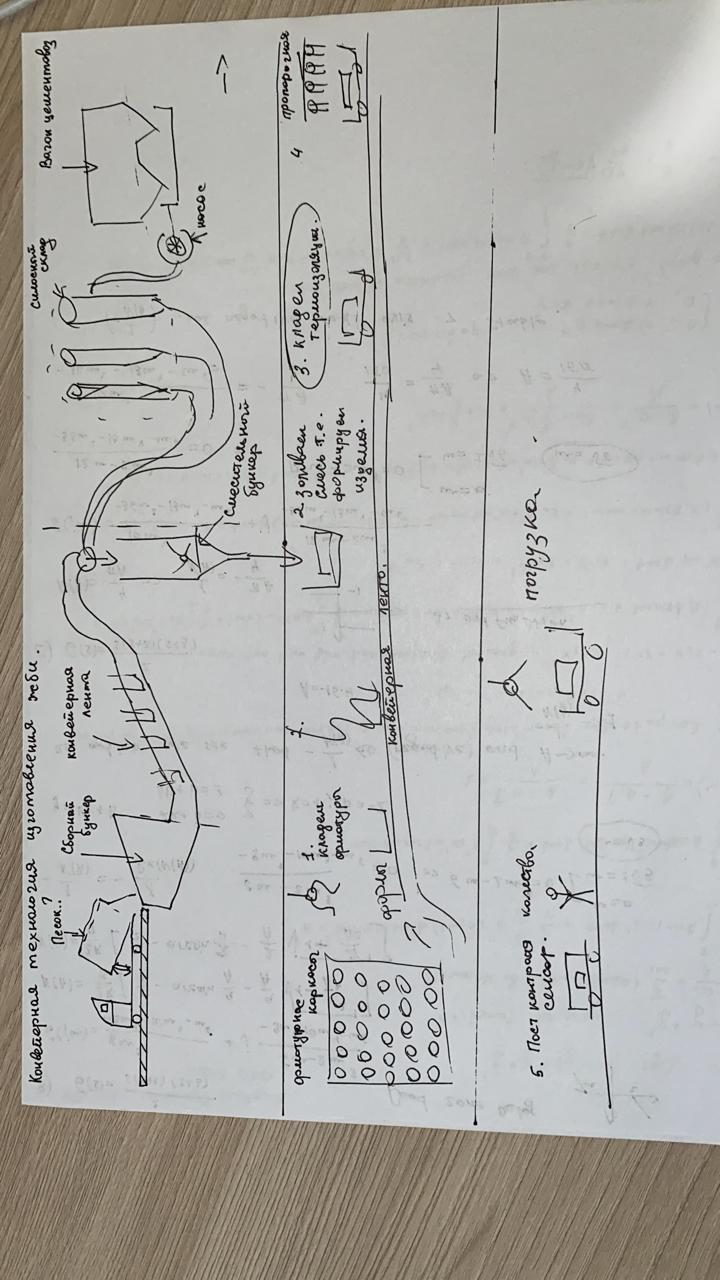 Конвейерная технология изготовления жби.
Песок.?
Сборный
бункер
конвейерная
лента
Силосный
склад
Вагон цементовоз
насос
Смесительный
бункер
арматурные
каркасы
1.
кладем
арматуры
формы
конвейерная лента.
2 заливаем
смесь т.е.
формируем
изделия.
3. кладем
термоизоляцию.
4 пропарочная
5. Пост контроля качество,
сенсор.
погрузка